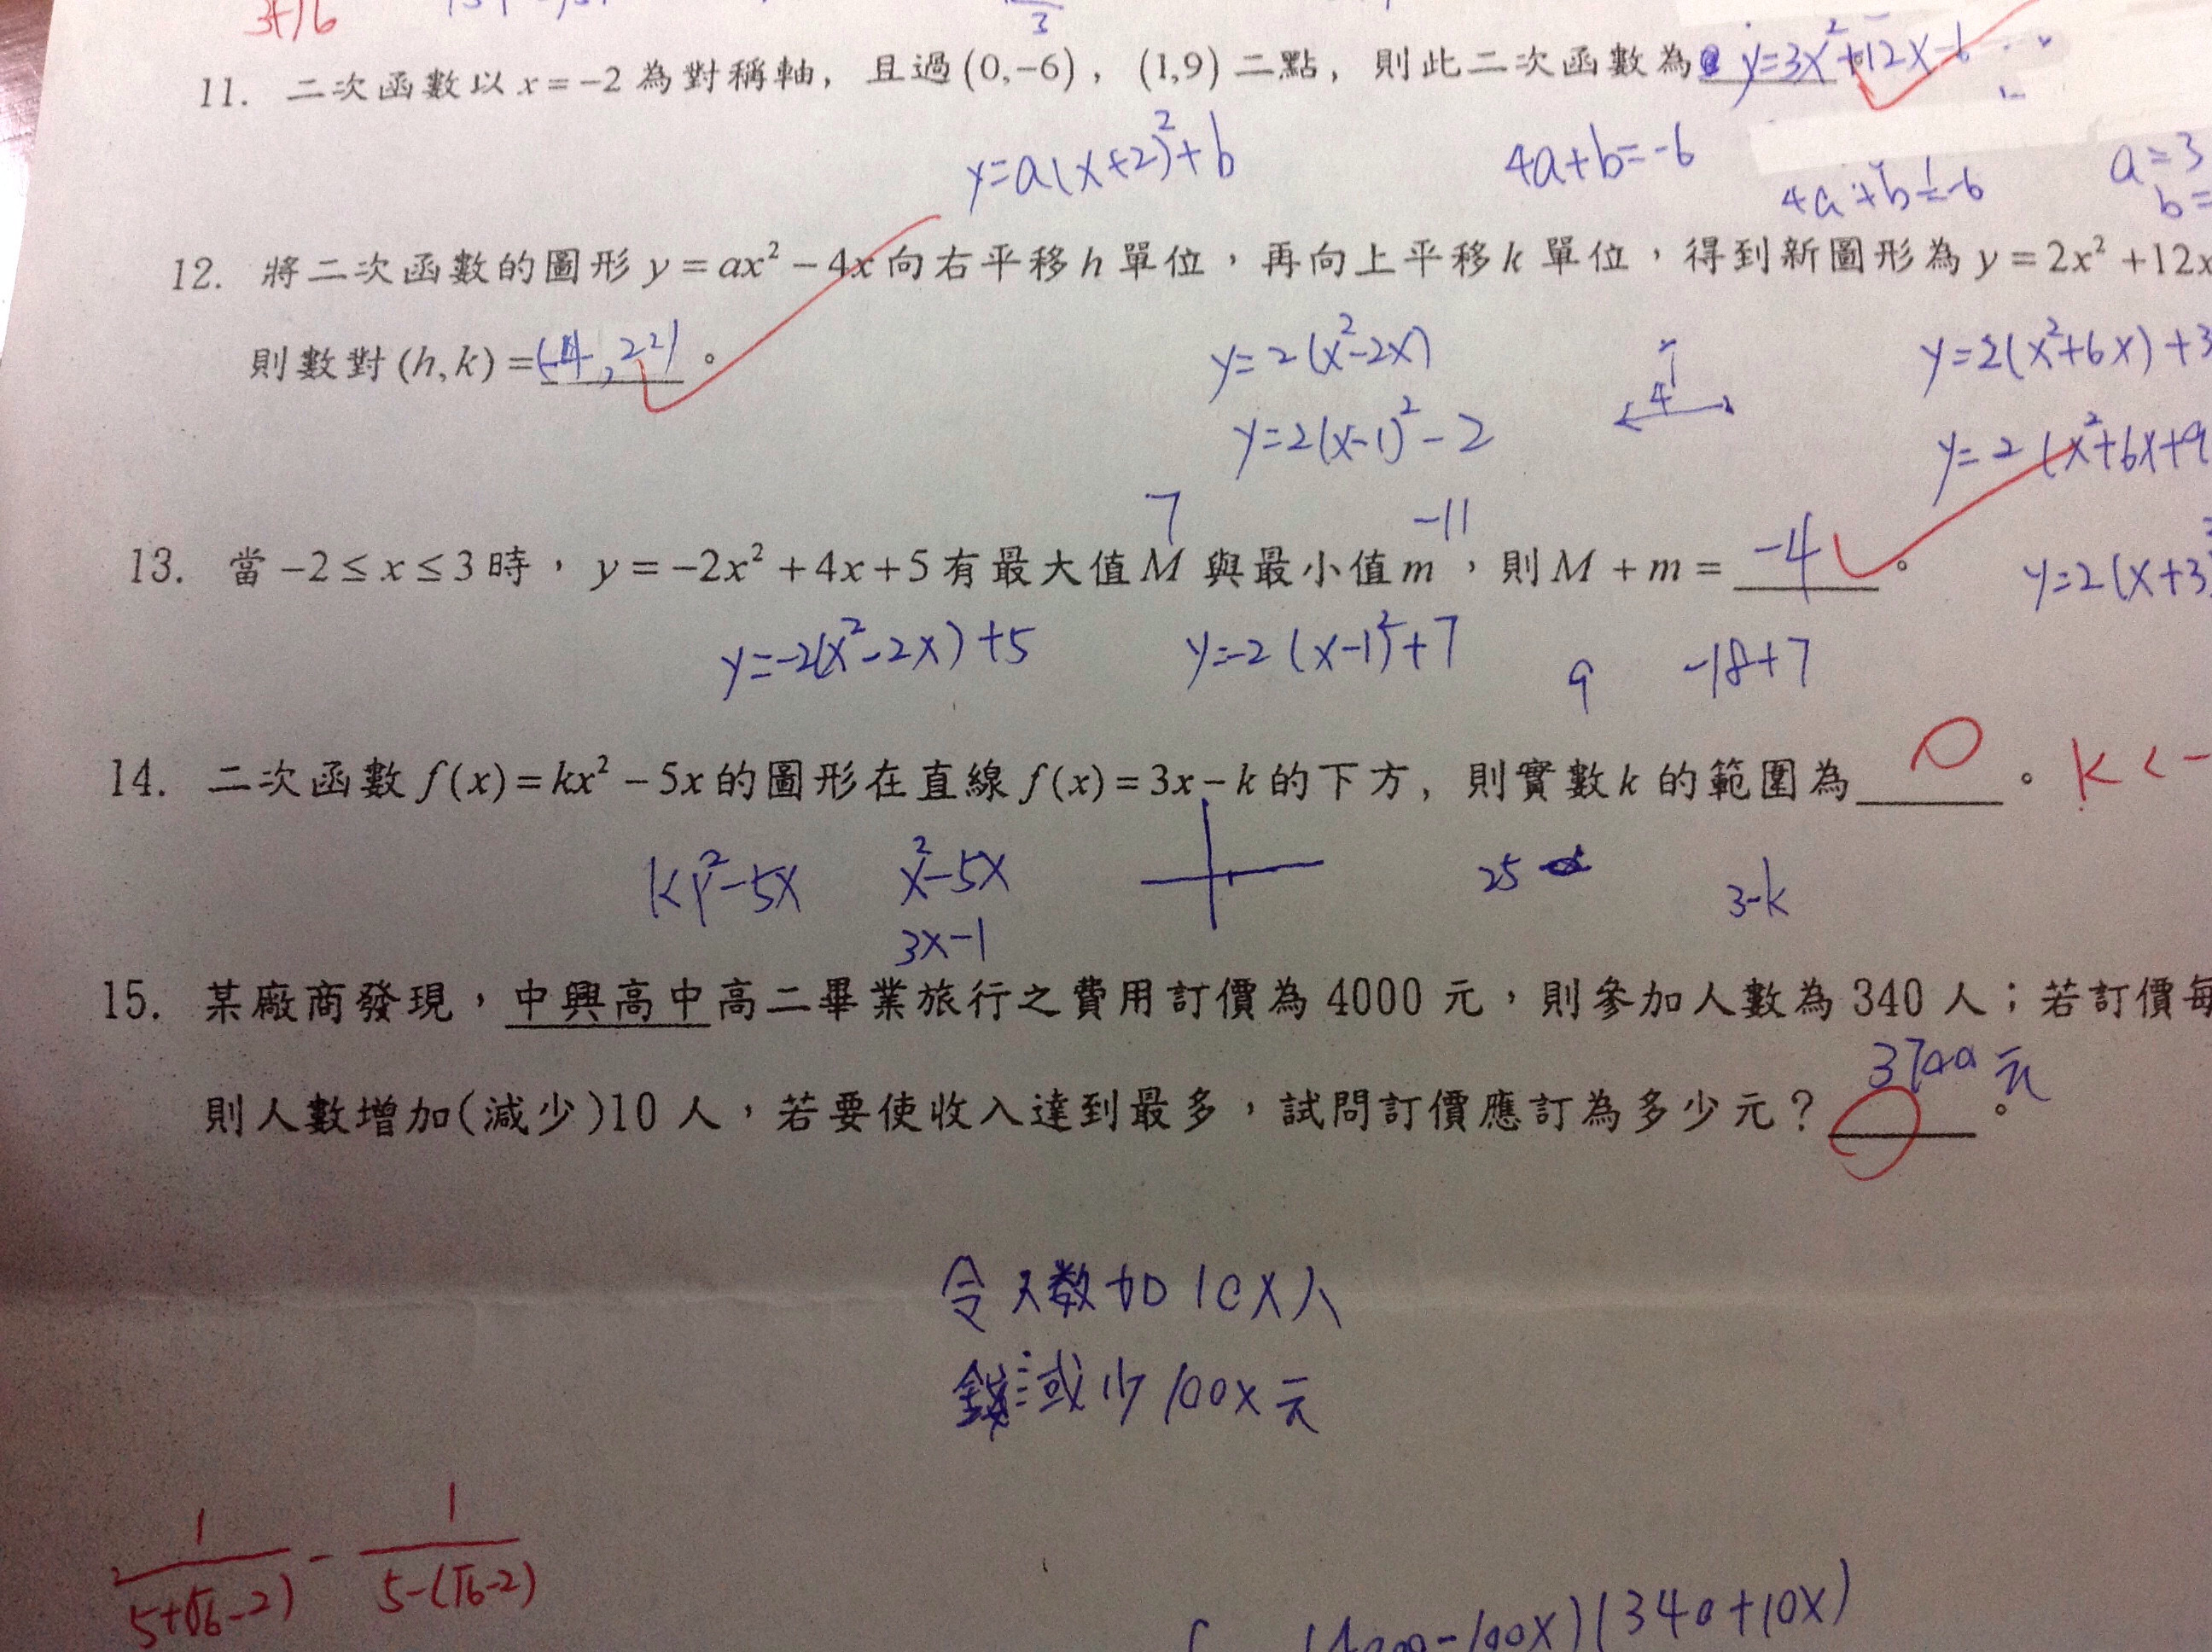 3+)6
3
11. 二次函數以 x=-2 為對稱軸, 且過 (0,-6), (1,9) 二點, 則此二次函數為 y=3x²+12x-6
y=a(x+2)²+b 4a+b=-6 4a+b=-6 a=3
b=
12. 將二次函數的圖形 y=ax²-4x 向右平移 h 單位,再向上平移 k 單位,得到新圖形為 y=2x²+12x
則數對 (h,k)=(-4,22)。
y=2(x²-2x) 4 y=2(x²+6x)+3
y=2(x-1)²-2 y=2(x²+6x+9
7 -11
13. 當 -2≤x≤3 時, y=-2x²+4x+5 有最大值 M 與最小值 m,則 M+m=-4。 y=2(x+3)
y=-2(x²-2x)+5 y=-2(x-1)²+7 9 -18+7
14. 二次函數 f(x)=kx²-5x 的圖形在直線 f(x)=3x-k 的下方, 則實數 k 的範圍為______。 k<-
kx²-5x x²-5x 25 3-k
3x-1
15. 某廠商發現,中興高中高二畢業旅行之費用訂價為 4000 元,則參加人數為 340 人;若訂價每
3700元
則人數增加(減少)10 人,若要使收入達到最多,試問訂價應訂為多少元?______。
令人数加10x人
錢減少100x元
1/(5+(√6-2)) - 1/(5-(√6-2))
(4000-100x)(340+10x)